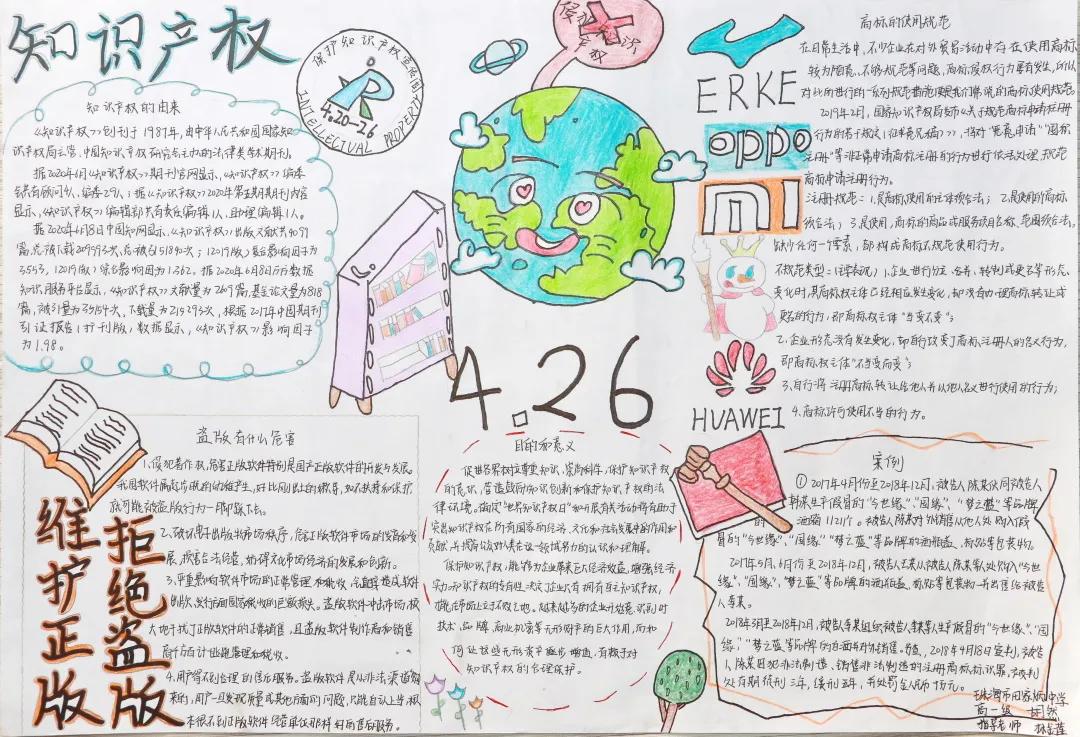 知识产权
保护知识产权宣传周
4.20-26
INTELLECTUAL PROPERTY
知识产权的由来
《知识产权》创刊于1987年,由中华人民共和国国家知
识产权局主管、中国知识产权研究会主办的法律类学术期刊。
据2020年6月《知识产权》期刊官网显示,《知识产权》编委
会共有顾问4人、编委29人;据《知识产权》2020年第5期期刊内容
显示,《知识产权》编辑部共有责任编辑1人、助理编辑1人。
据2020年6月8日中国知网显示,《知识产权》出版文献共4099
篇、总被下载2099593次、总被引51840次;(2019版)复合影响因子为
3.543,(2019版)综合影响因子为1.362。据2020年6月8日万方数据
知识服务平台显示,《知识产权》文献量为2609篇,基金论文量为818
篇,被引量为33984次、下载量为219293次,根据2017年中国期刊
引证报告(扩刊版)数据显示,《知识产权》影响因子
为1.98。
4.26
ERKE
oppo
mi
HUAWEI
商标的使用规范
在日常生活中,不少企业在对外贸易活动中存在使用商标
较为随意、不够规范等问题,商标侵权行为更有发生,所以
对此的进行的一系列规范措施
2019年2月,国家知识产权局发布《关于规范商标申请注册
行为的若干规定(征求意见稿)》,将对“恶意申请”“囤积
注册”等非正常申请商标注册的行为进行依法处理,规范
商标申请注册行为。
注册规范:1.是商标使用的主体须合法;2.是使用的商标
须合法;3.是使用,商标的商品或服务项目名称、范围须合法,
缺少任何一个要素,即构成商标不规范使用行为。
不规范类型:1.企业进行分立、合并、转制或更名等形态
变化时,其商标权主体已经相应发生变化,却没有办理商标转让或
更名的行为,即商标权主体“当变不变”;
2.企业形态没有发生变化,即自行改变了商标注册人的名义行为,
即商标权主体“不当变而变”;
3.自行将注册商标转让给他人并以他人名义进行使用的行为;
4.商标许可使用不当的行为。
盗版有什么危害
1.侵犯著作权,危害正版软件特别是国产正版软件的开发与发展。
2.破坏电子出版市场秩序,危害正版软件市场的发育和发
展,损害合法经营,妨碍文化市场经济的发展和创新。
3.严重影响软件市场的正常管理和税收,会直接造成软件
出版、发行方面国家税收的巨额损失。盗版软件冲击市场,极
大地干扰了正版软件的正常销售,且盗版软件制作商和销售
商千方百计地逃避管理和税收。
4.用户得不到合理的售后服务。盗版软件是从非法渠道购
来的,用户一旦发现质量或其他方面的问题,只能自认上当,根
本得不到正版软件经营单位那样好的售后服务。
维护正版
拒绝盗版
目的和意义
促进各界树立尊重知识,崇尚科学,保护知识产权
的意识,营造鼓励知识创新和保护知识产权的法
律环境。确定“世界知识产权日”和开展有关活动将有助于
突出知识产权在所有国家的经济、文化和社会发展中的作用和
贡献,并提高公众对人类在这一领域努力的认识和理解。
保护知识产权,能够为企业带来巨大经济效益,增强经济
实力。知识产权的专有性决定了企业只有拥有自主知识产权,
才能在市场上立于不败之地。越来越多的企业开始意识到对
技术、品牌、商业机密等无形财产的巨大作用,而如
何让这些无形资产逐步增值,有赖于对
知识产权的合理保护。
案例
①2017年4月份至2018年12月,被告人陈某从同被告人
韩某生产假冒的“今世缘”、“国缘”、“梦之蓝”等品牌的
酒箱11211个。被告人陈某对外销售从他人处购入假
冒的“今世缘”、“国缘”“梦之蓝”等品牌的酒瓶盖、商标等包装物。
2017年5月、6月份至2018年12月,被告人王某从被告人陈某等人处购入“今世
缘”、“国缘”、“梦之蓝”等品牌的酒瓶盖、商标等包装物一并出售给被告
人李某。
2018年3月至2018年12月,被告李某组织被告人钱某等人生产假冒的“今世缘”、“国
缘”、“梦之蓝”等品牌的白酒并对外销售。
陈某因犯非法制造、销售非法制造的注册商标标识罪,被判
处有期徒刑三年,缓刑五年,并处罚金人民币
珠海市田家炳中学
高一级
指导老师